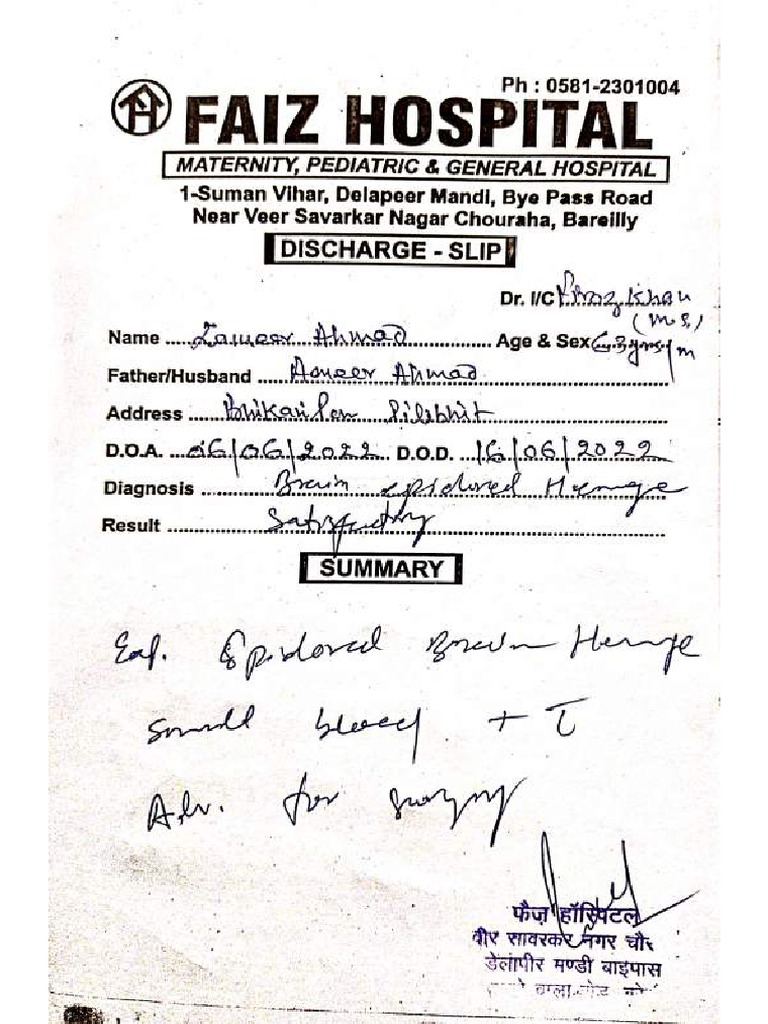 Ph : 0581-2301004
FAIZ HOSPITAL
MATERNITY, PEDIATRIC & GENERAL HOSPITAL
1-Suman Vihar, Delapeer Mandi, Bye Pass Road
Near Veer Savarkar Nagar Chouraha, Bareilly
DISCHARGE - SLIP
Dr. I/C Khan
(M.S)
Name Zameer Ahmad Age & Sex 63yrs/m
Father/Husband Ameer Ahmad
Address Pilibhit
D.O.A. 06/06/2022 D.O.D. 16/06/2022
Diagnosis Brain epidored Hemge
Result
SUMMARY
Epidored Brain Hemge
small bleed +
Adv. for
फैज़ हॉस्पिटल
वीर सावरकर नगर चौ
डेलापीर मण्डी बाईपास